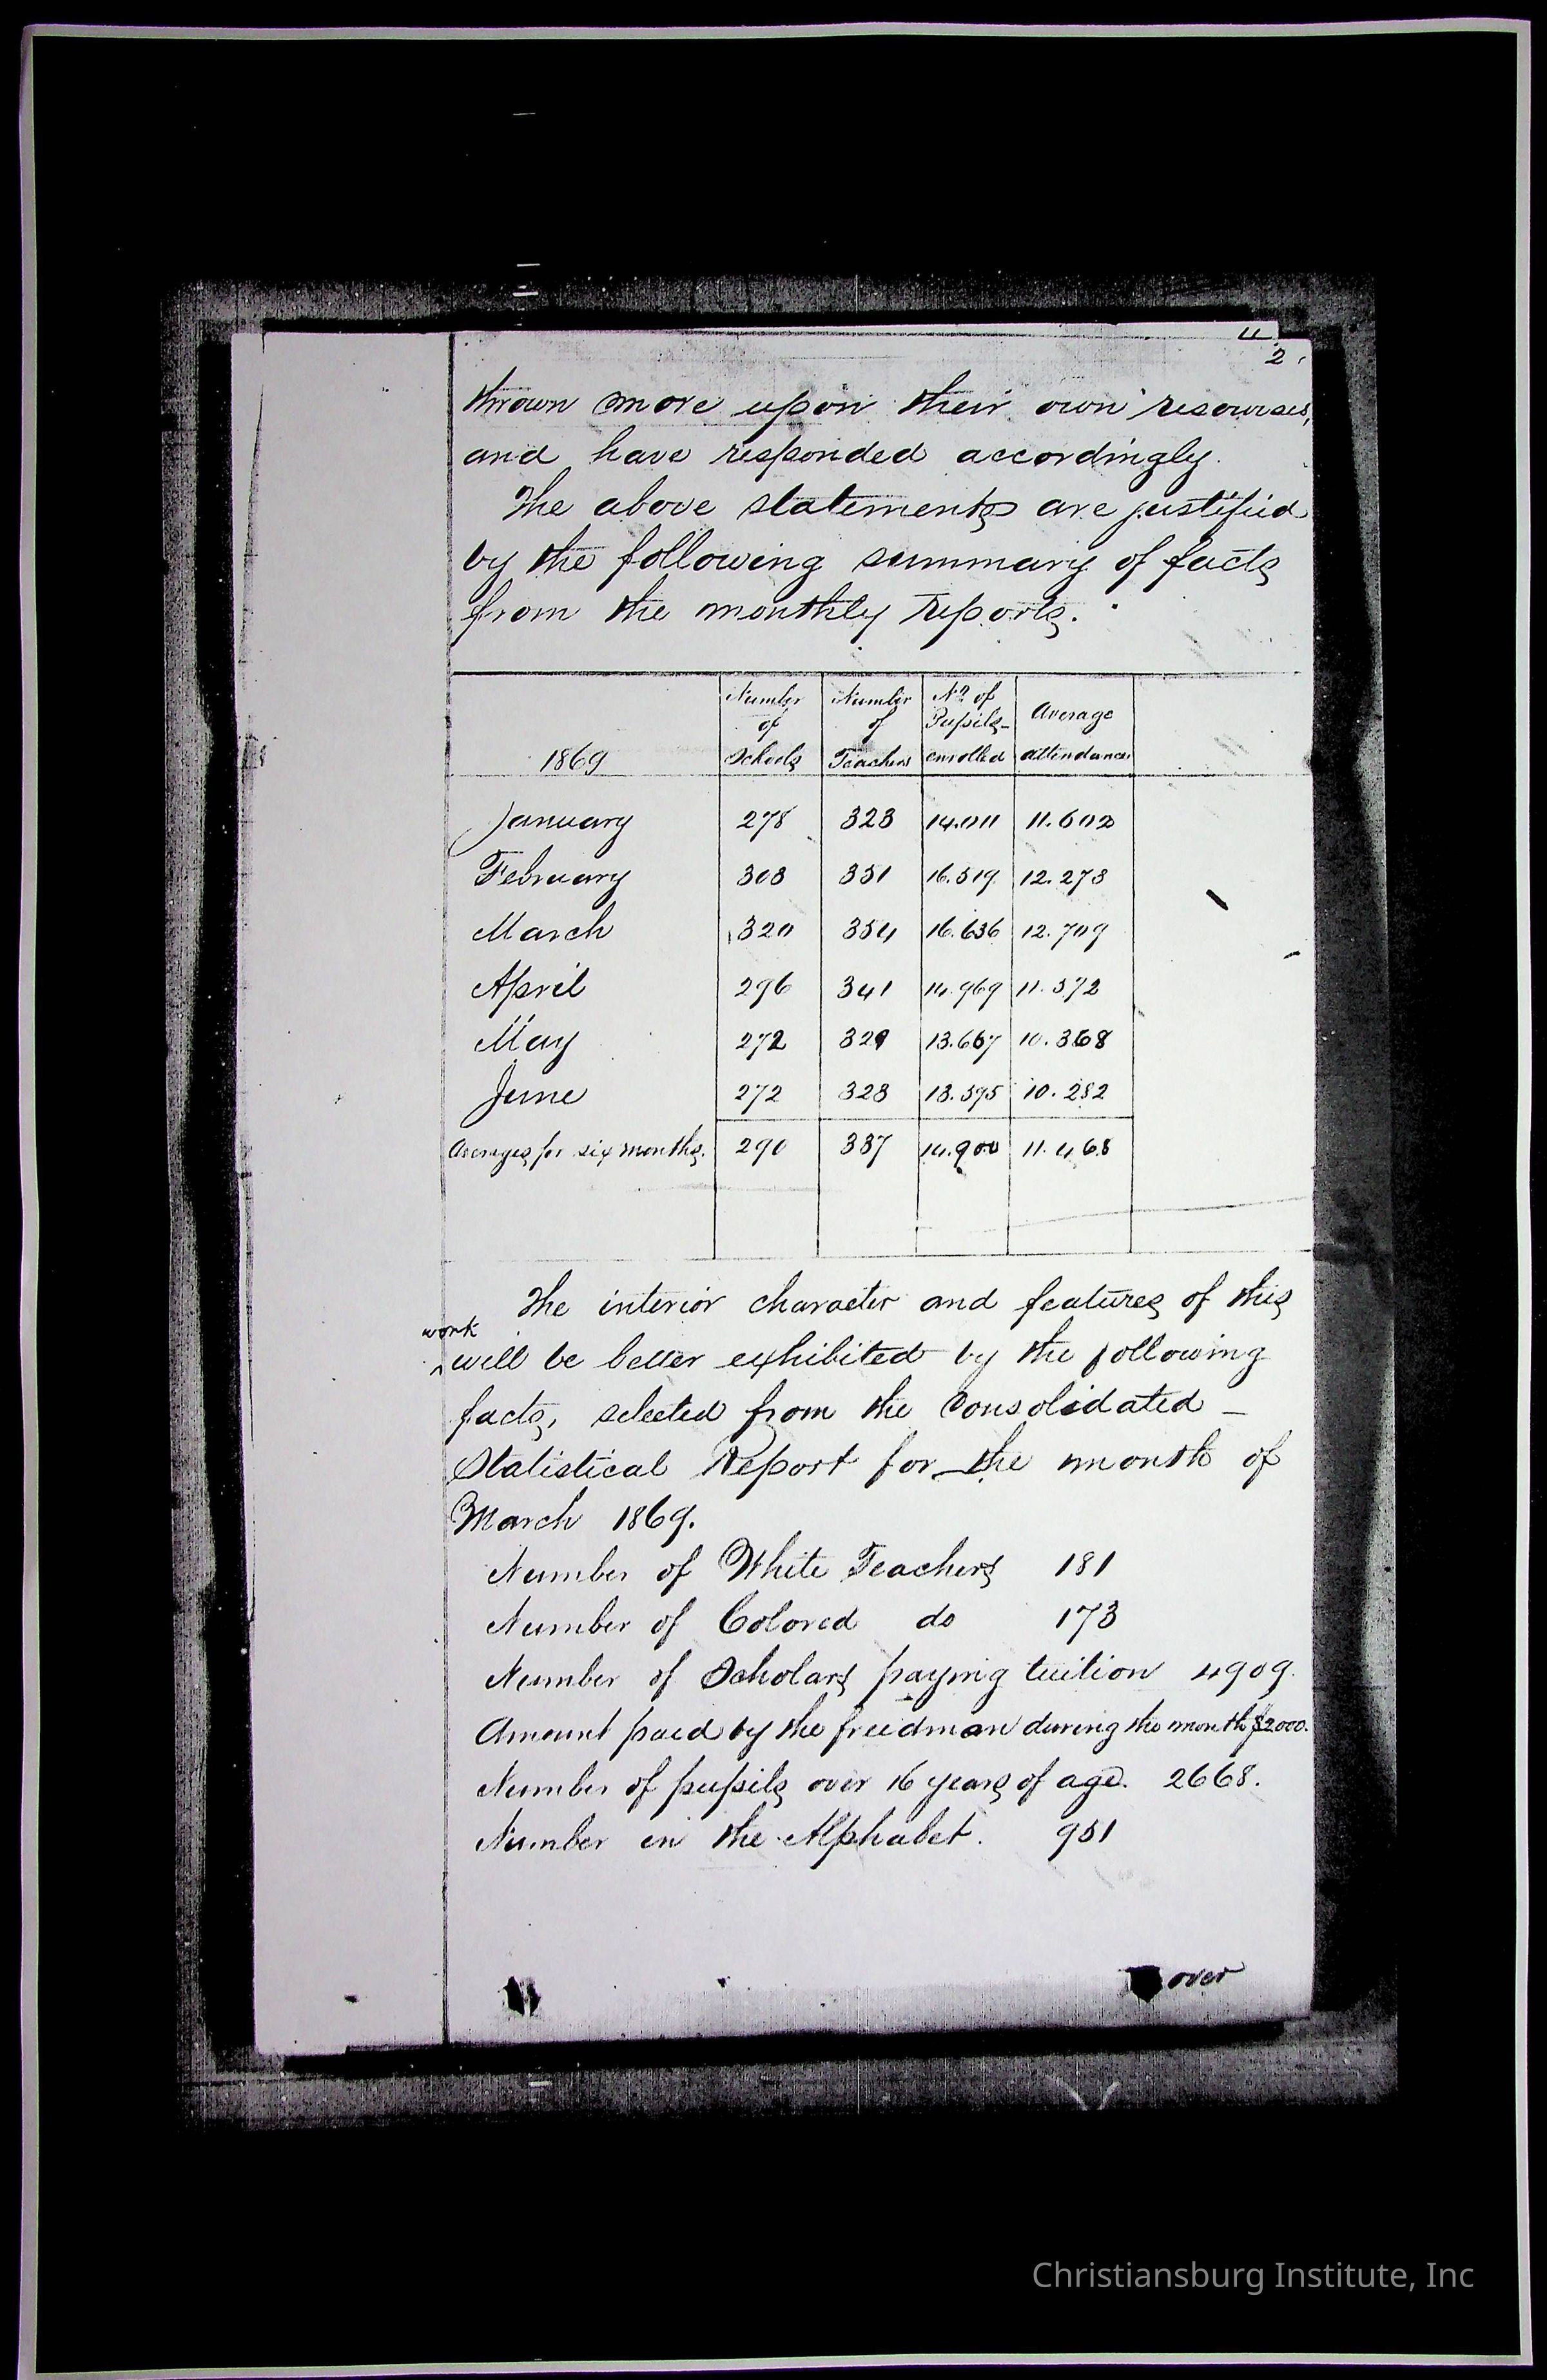 11
2.
thrown more upon their own resources,
and have responded accordingly.
The above statements are justified
by the following summary of facts
from the monthly reports.
1869 Number of Schools Number of Teachers No. of Pupils- enrolled Average attendance
January 278 323 14.011 11.602
February 303 351 16.519 12.273
March 320 354 16.636 12.709
April 296 341 14.969 11.572
May 272 329 13.667 10.368
June 272 323 13.595 10.282
Averages for six months. 290 337 14.900 11.468
The interior character and features of this
work
will be better exhibited by the following
facts, selected from the Consolidated -
Statistical Report for the month of
March 1869.
Number of White Teachers 181
Number of Colored do 173
Number of Scholars paying tuition 4909.
Amount paid by the freedman during the month $2000.
Number of pupils over 16 years of age. 2668.
Number in the Alphabet. 951
over
Christiansburg Institute, Inc